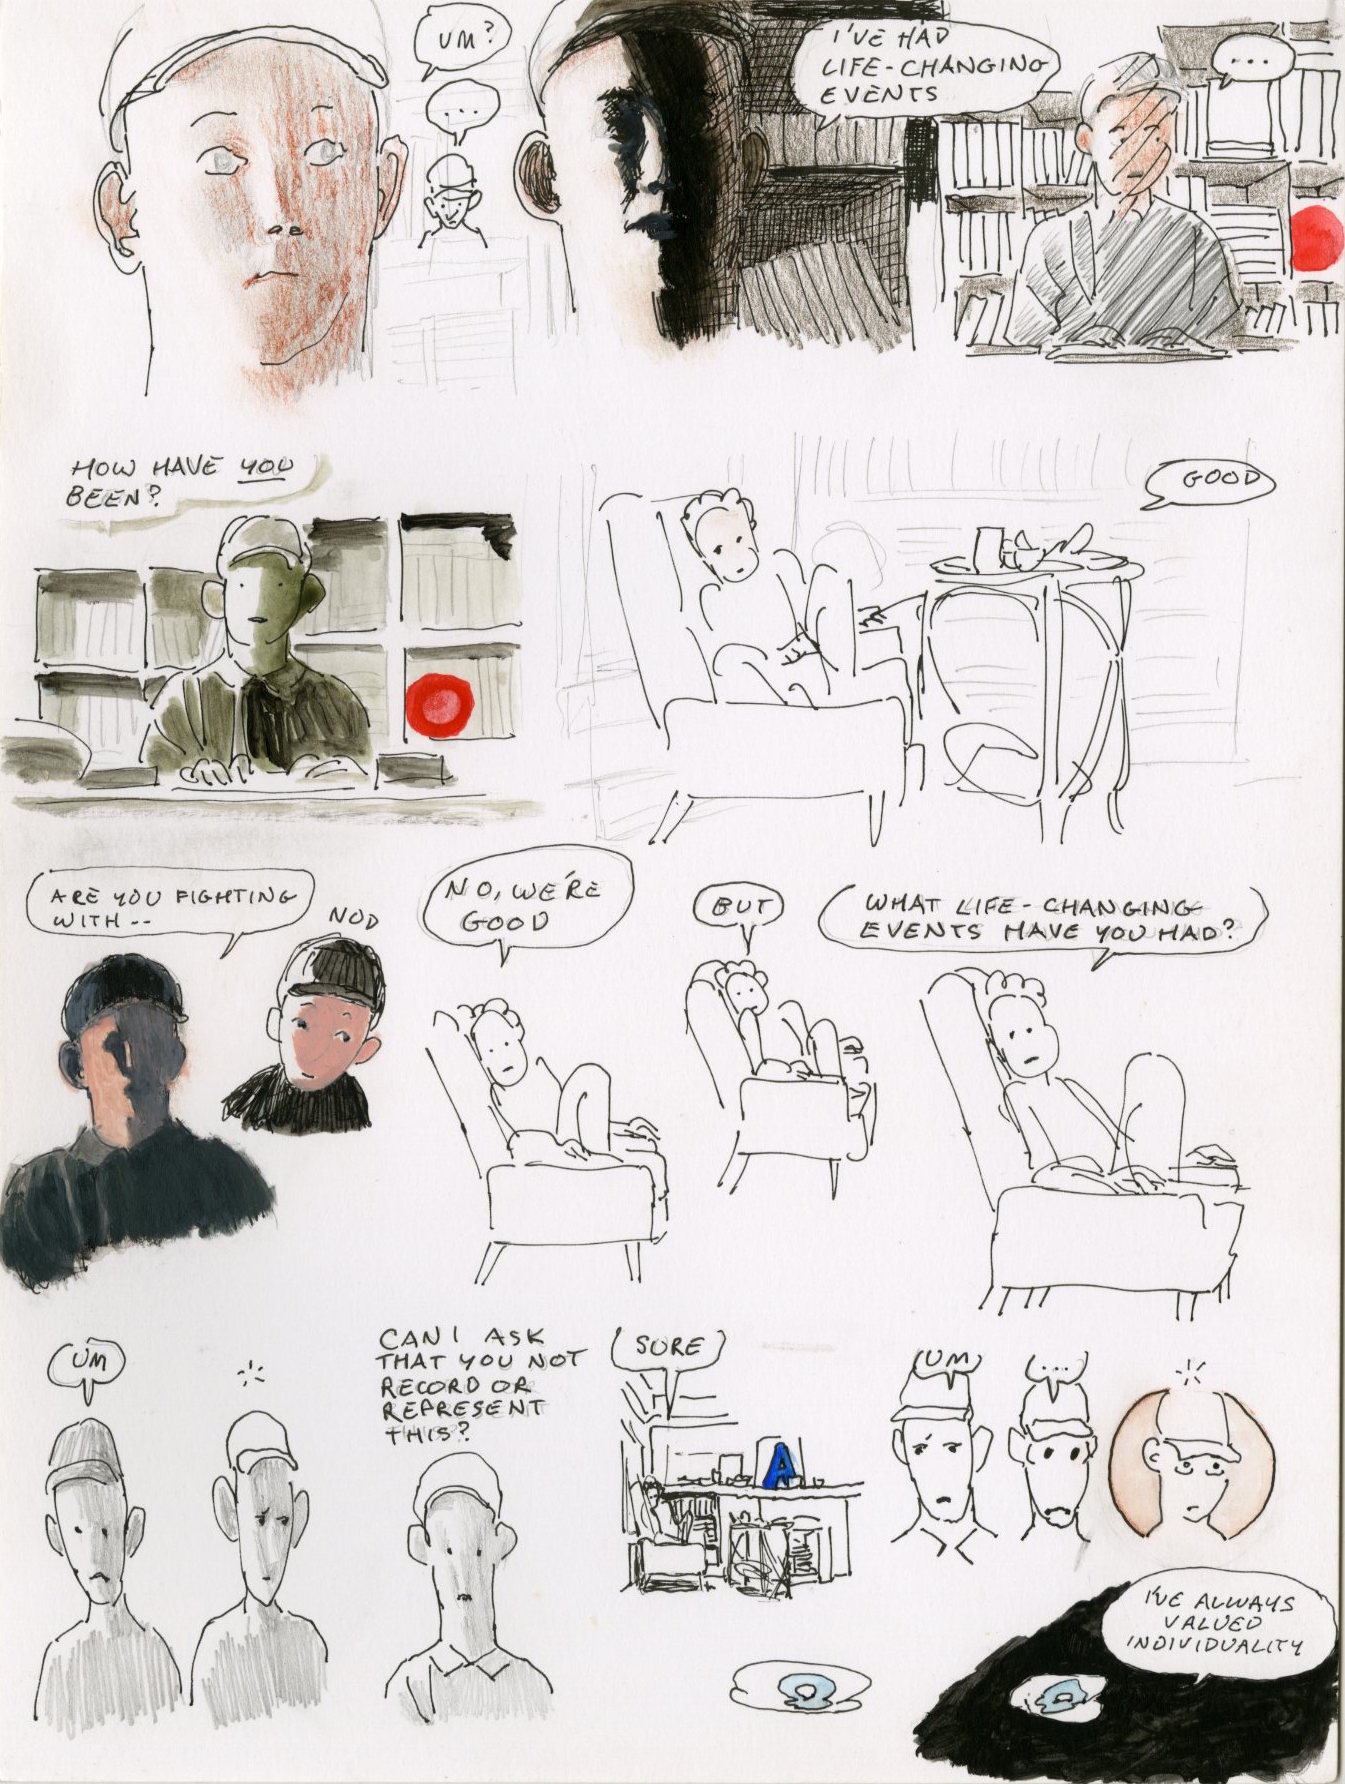 UM?
...
I'VE HAD
LIFE-CHANGING
EVENTS
...
HOW HAVE YOU
BEEN?
GOOD
ARE YOU FIGHTING
WITH--
NOD
NO, WE'RE
GOOD
BUT
WHAT LIFE-CHANGING
EVENTS HAVE YOU HAD?
UM
CAN I ASK
THAT YOU NOT
RECORD OR
REPRESENT
THIS?
SURE
A
UM
...
I'VE ALWAYS
VALUED
INDIVIDUALITY